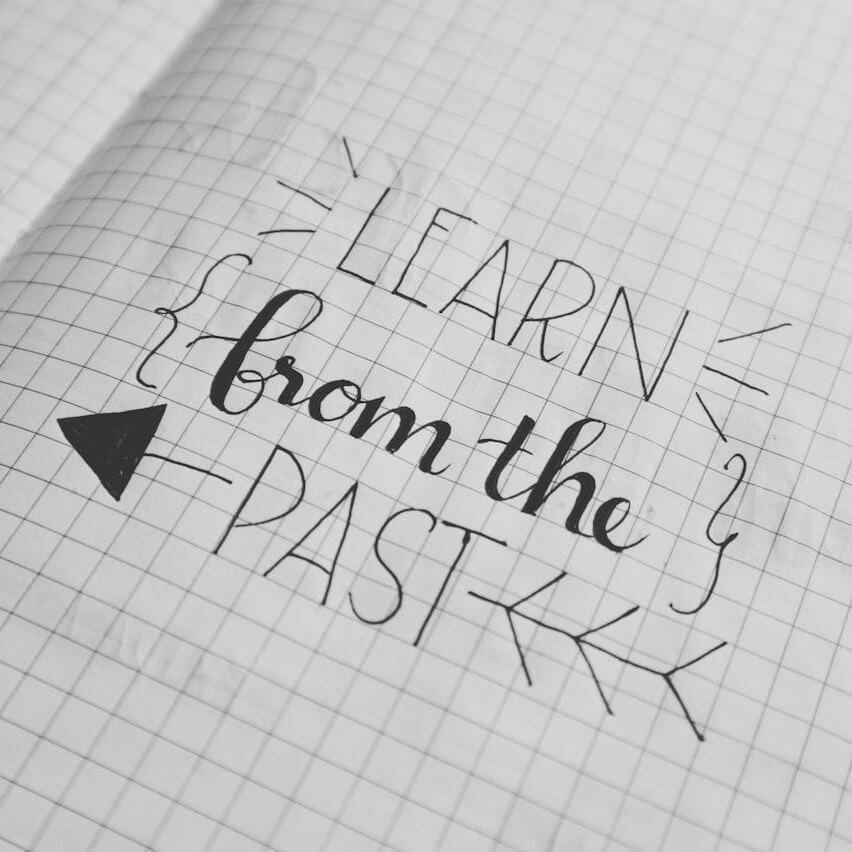 LEARN
{ from the }
PAST